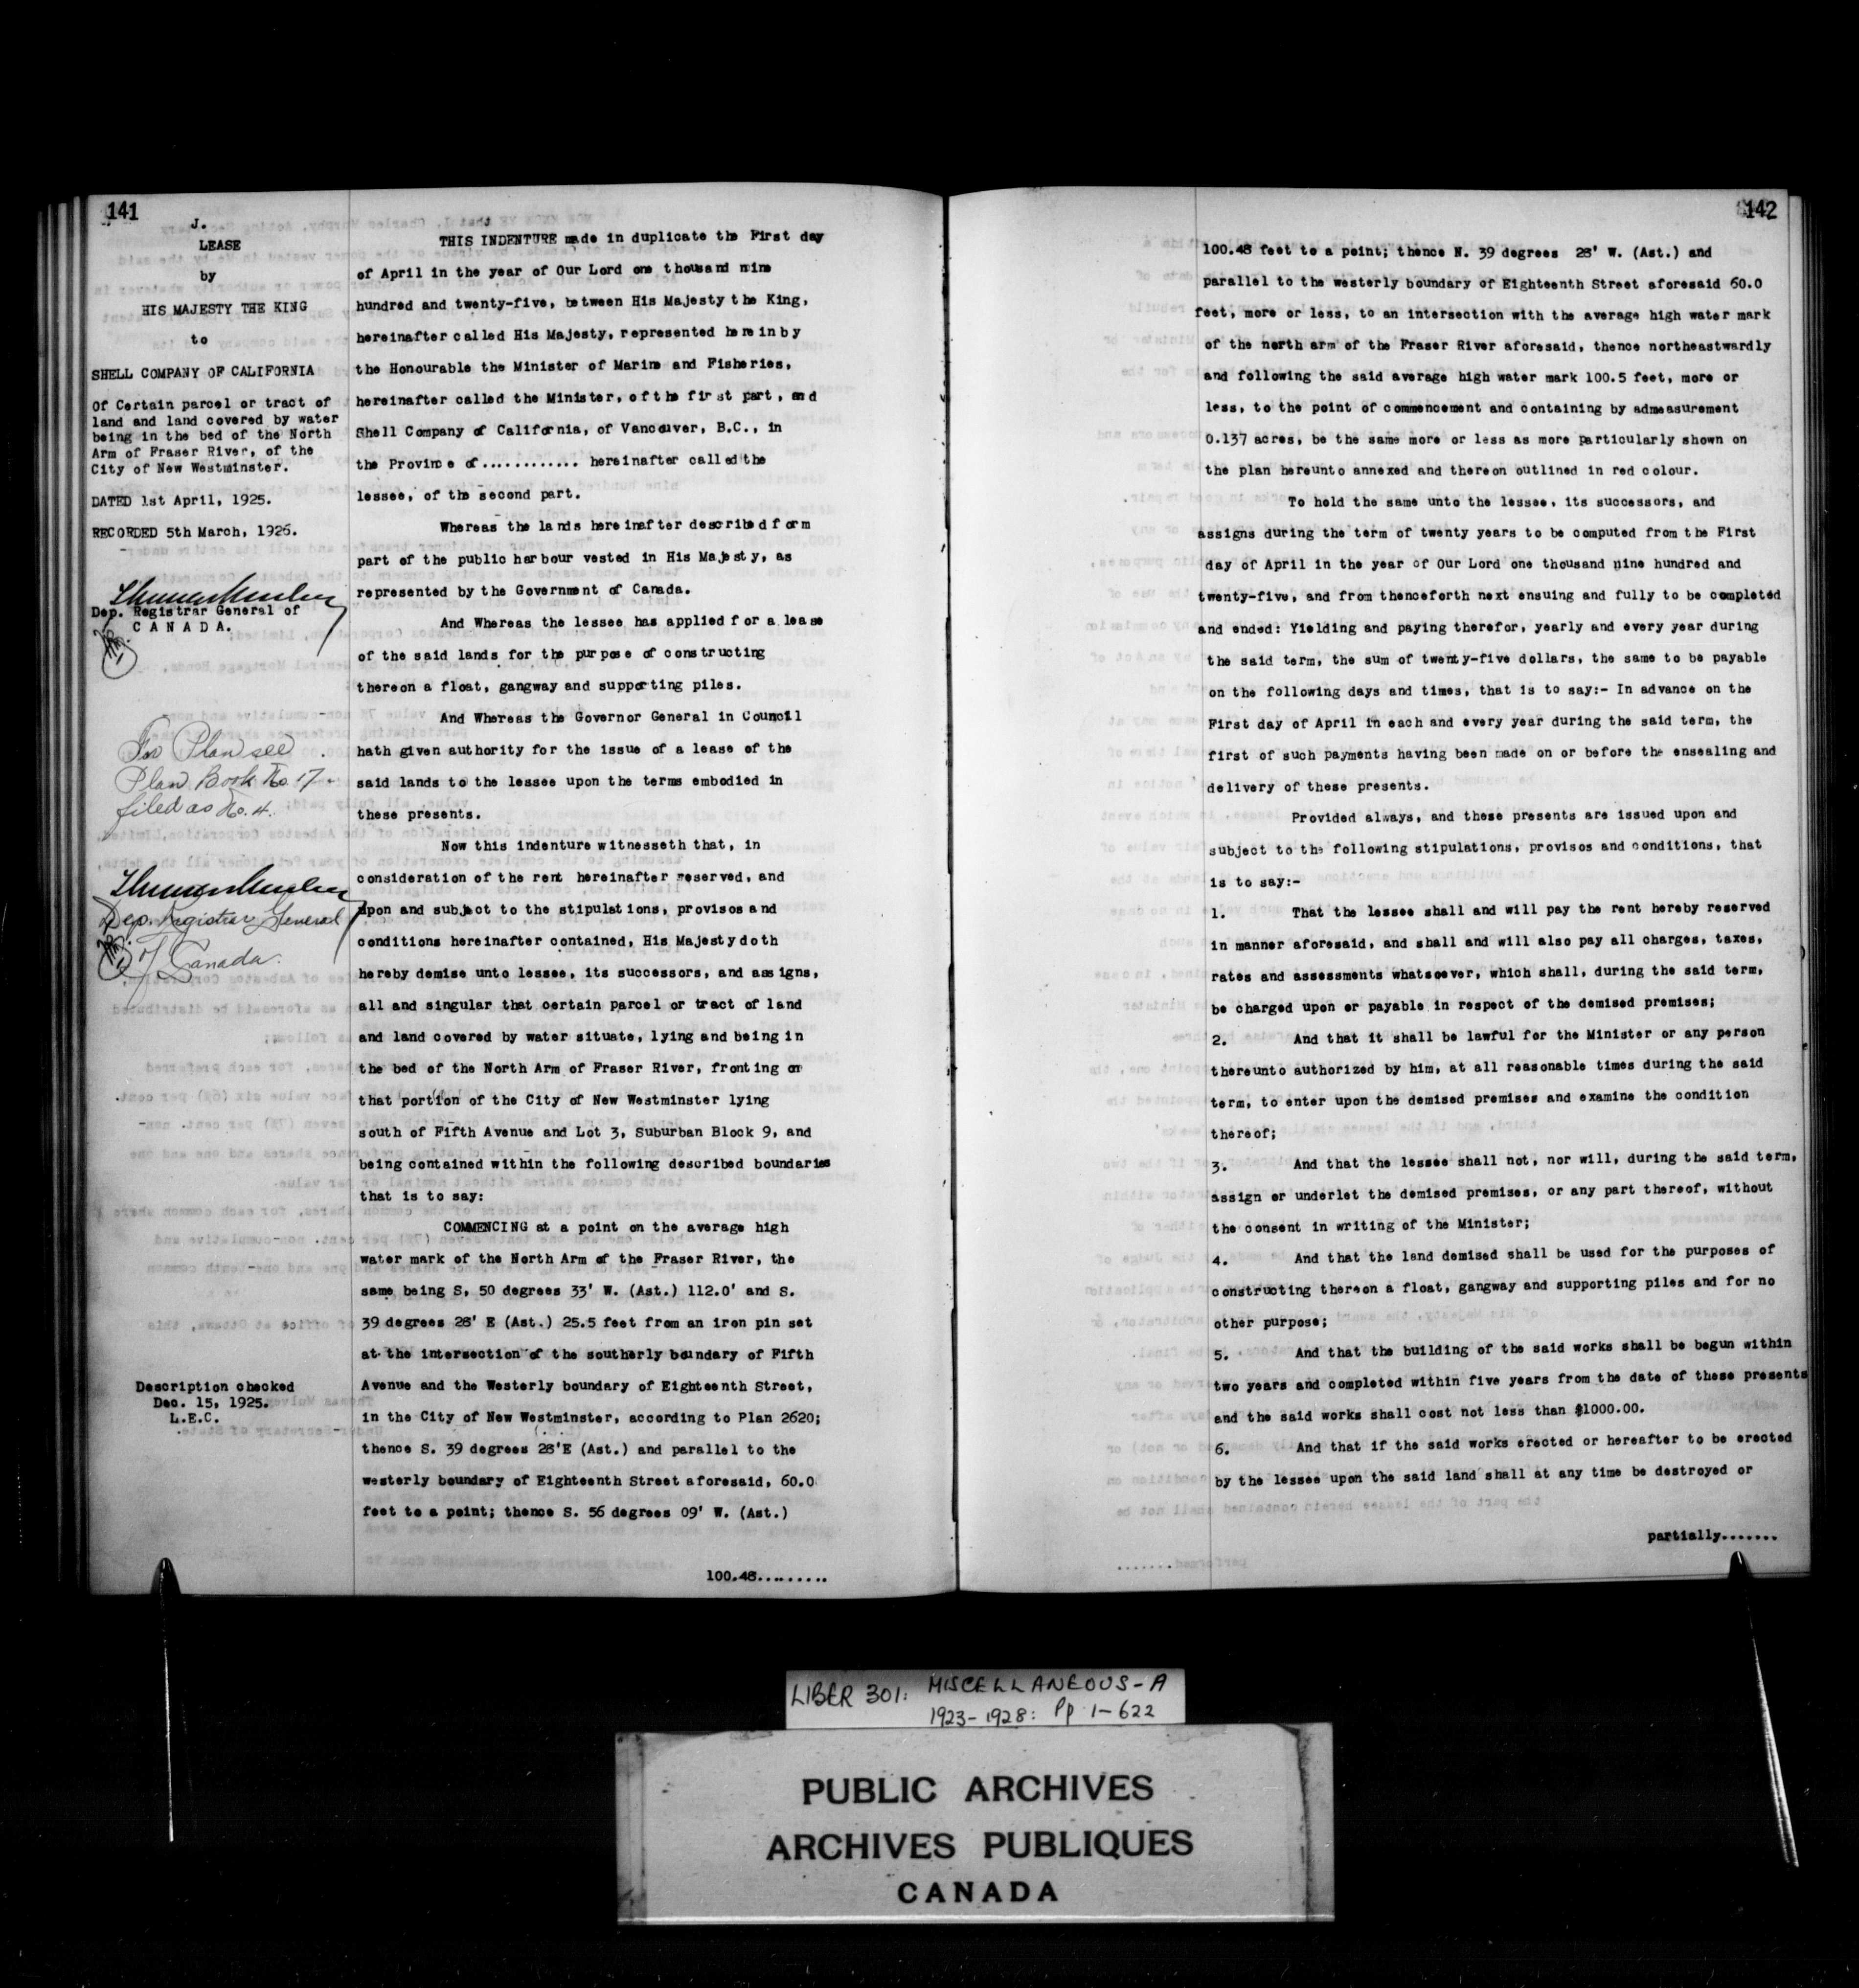 141
J.
LEASE
by
HIS MAJESTY THE KING
to
SHELL COMPANY OF CALIFORNIA
Of Certain parcel or tract of
land and land covered by water
being in the bed of the North
Arm of Fraser River, of the
City of New Westminster.
DATED 1st April, 1925.
RECORDED 5th March, 1926.
Dep. Registrar General of
CANADA.
For Plan see
Plan Book No. 17.
filed as No. 4.
Dep. Registrar General
of Canada.
Description checked
Dec. 15, 1925.
L.E.C.
THIS INDENTURE made in duplicate the First day
of April in the year of Our Lord one thousand nine
hundred and twenty-five, between His Majesty the King,
hereinafter called His Majesty, represented herein by
the Honourable the Minister of Marine and Fisheries,
hereinafter called the Minister, of the first part, and
Shell Company of California, of Vancouver, B.C., in
the Province of............ hereinafter called the
lessee, of the second part.
Whereas the lands hereinafter described form
part of the public harbour vested in His Majesty, as
represented by the Government of Canada.
And Whereas the lessee has applied for a lease
of the said lands for the purpose of constructing
thereon a float, gangway and supporting piles.
And Whereas the Governor General in Council
hath given authority for the issue of a lease of the
said lands to the lessee upon the terms embodied in
these presents.
Now this indenture witnesseth that, in
consideration of the rent hereinafter reserved, and
upon and subject to the stipulations, provisos and
conditions hereinafter contained, His Majesty doth
hereby demise unto lessee, its successors, and assigns,
all and singular that certain parcel or tract of land
and land covered by water situate, lying and being in
the bed of the North Arm of Fraser River, fronting on
that portion of the City of New Westminster lying
south of Fifth Avenue and Lot 3, Suburban Block 9, and
being contained within the following described boundaries
that is to say:
COMMENCING at a point on the average high
water mark of the North Arm of the Fraser River, the
same being S, 50 degrees 33' W. (Ast.) 112.0' and S.
39 degrees 28' E (Ast.) 25.5 feet from an iron pin set
at the intersection of the southerly boundary of Fifth
Avenue and the Westerly boundary of Eighteenth Street,
in the City of New Westminster, according to Plan 2620;
thence S. 39 degrees 28'E (Ast.) and parallel to the
westerly boundary of Eighteenth Street aforesaid, 60.0
feet to a point; thence S. 56 degrees 09' W. (Ast.)
100.48.........
142
100.48 feet to a point; thence N. 39 degrees 28' W. (Ast.) and
parallel to the westerly boundary of Eighteenth Street aforesaid 60.0
feet, more or less, to an intersection with the average high water mark
of the north arm of the Fraser River aforesaid, thence northeastwardly
and following the said average high water mark 100.5 feet, more or
less, to the point of commencement and containing by admeasurement
0.137 acres, be the same more or less as more particularly shown on
the plan hereunto annexed and thereon outlined in red colour.
To hold the same unto the lessee, its successors, and
assigns during the term of twenty years to be computed from the First
day of April in the year of Our Lord one thousand nine hundred and
twenty-five, and from thenceforth next ensuing and fully to be completed
and ended: Yielding and paying therefor, yearly and every year during
the said term, the sum of twenty-five dollars, the same to be payable
on the following days and times, that is to say:- In advance on the
First day of April in each and every year during the said term, the
first of such payments having been made on or before the ensealing and
delivery of these presents.
Provided always, and these presents are issued upon and
subject to the following stipulations, provisos and conditions, that
is to say:-
1. That the lessee shall and will pay the rent hereby reserved
in manner aforesaid, and shall and will also pay all charges, taxes,
rates and assessments whatsoever, which shall, during the said term,
be charged upon or payable in respect of the demised premises;
2. And that it shall be lawful for the Minister or any person
thereunto authorized by him, at all reasonable times during the said
term, to enter upon the demised premises and examine the condition
thereof;
3. And that the lessee shall not, nor will, during the said term,
assign or underlet the demised premises, or any part thereof, without
the consent in writing of the Minister;
4. And that the land demised shall be used for the purposes of
constructing thereon a float, gangway and supporting piles and for no
other purpose;
5. And that the building of the said works shall be begun within
two years and completed within five years from the date of these presents
and the said works shall cost not less than $1000.00.
6. And that if the said works erected or hereafter to be erected
by the lessee upon the said land shall at any time be destroyed or
partially.......
LIBER 301: MISCELLANEOUS-A
1923-1928: Pp 1-622
PUBLIC ARCHIVES
ARCHIVES PUBLIQUES
CANADA